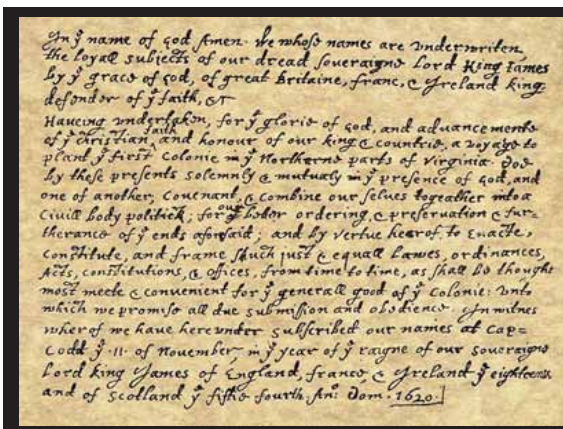 In yᵉ name of god Amen· We whose names are vnderwriten,
the loyall subjects of our dread soueraigne Lord King Iames
by yᵉ grace of god, of great Britaine, franc, & Ireland king,
defender of yᵉ faith, &c
Haueing vndertaken, for yᵉ glorie of god, and aduancemente
of yᵉ christian faith and honour of our king & countrie, a voyage to
plant yᵉ first colonie in yᵉ Northerne parts of Virginia· doe
by these presents solemnly & mutualy in yᵉ presence of god, and
one of another, couenant, & combine our selues togeather into a
ciuill body politick; for our better ordering, & preseruation & fur=
therance of yᵉ ends aforesaid; and by vertue hearof, to enacte,
constitute, and frame shuch just & equall lawes, ordinances,
Acts, constitutions, & offices, from time to time, as shall be thought
most meete & conuenient for yᵉ generall good of yᵉ colonie: vnto
which we promise all due submission and obedience. In witnes
wherof we have herevnder subscribed our names at cap=
Codd yᵉ ·11· of Nouember, in yᵉ year of yᵉ raigne of our soueraigne
Lord king James of England, france, & Ireland yᵉ eighteenth
and of Scotland yᵉ fiftie fourth. Anº Dom· 1620·